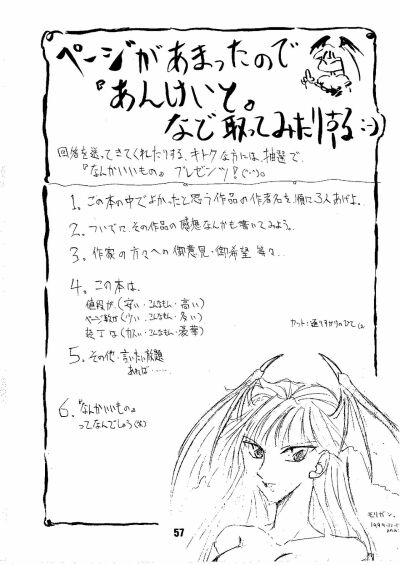 ページがあまったので
『あんけいと。
なで取ってみたりする:-)
回答を送ってきてくれたりする、キトクな方には、抽選で、
『なんかいいもの』 プレゼンツ!(^^)。
1. この本の中でよかったと思う作品の作者名を順に3人あげよ。
2. ついでに、その作品の感想なんかも書いてみよう。
3. 作家の方々への御意見・御希望 等々..
4. この本は、
値段が (安い・こんなもん・高い)
ページ数が (少い・こんなもん・多い)
装丁な (カスい・こんなもん・豪華)
カット:通りすがりのひと
5. その他・言いたい放題
あれば……
6. 『なんかいいもの』
ってなんでしょう(笑)
モリガン。
57